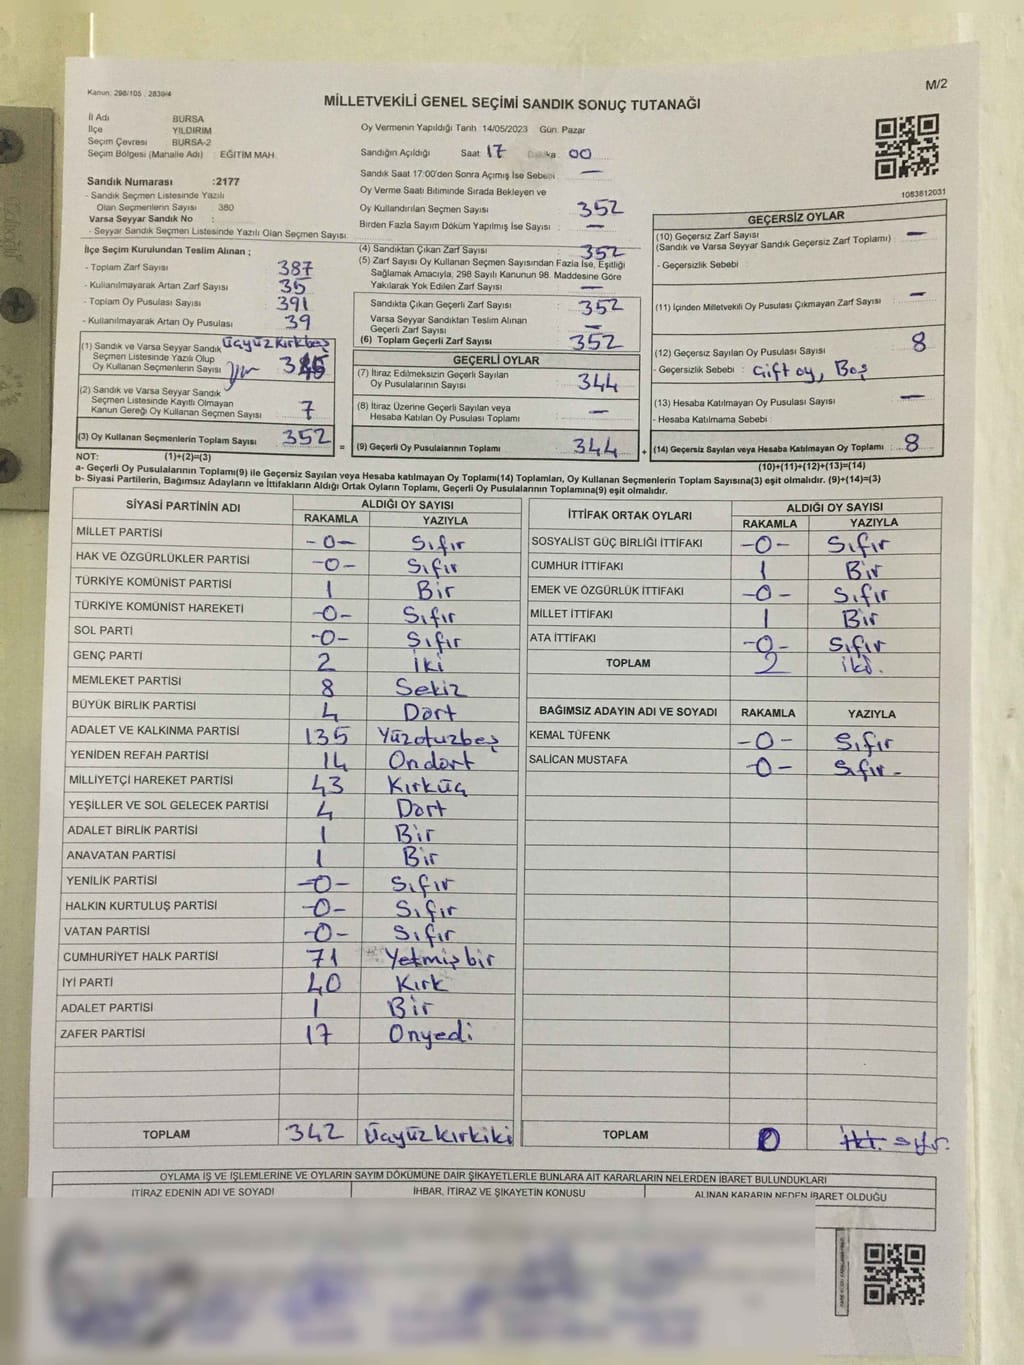 Kanun: 298/105 , 2839/4
M/2
MİLLETVEKİLİ GENEL SEÇİMİ SANDIK SONUÇ TUTANAĞI
İl Adı BURSA
İlçe YILDIRIM
Seçim Çevresi BURSA-2
Seçim Bölgesi (Mahalle Adı) : EĞİTİM MAH.
Sandık Numarası :2177
- Sandık Seçmen Listesinde Yazılı
Olan Seçmenlerin Sayısı : 380
Varsa Seyyar Sandık No :
- Seyyar Sandık Seçmen Listesinde Yazılı Olan Seçmen Sayısı:
Oy Vermenin Yapıldığı Tarih 14/05/2023 Gün: Pazar
Sandığın Açıldığı Saat 17 Dakika 00
Sandık Saat 17:00'den Sonra Açımış İse Sebebi —
Oy Verme Saati Bitiminde Sırada Bekleyen ve
Oy Kullandırılan Seçmen Sayısı 352
Birden Fazla Sayım Döküm Yapılmış İse Sayısı —
1083812031
İlçe Seçim Kurulundan Teslim Alınan ;
- Toplam Zarf Sayısı 387
- Kullanılmayarak Artan Zarf Sayısı 35
- Toplam Oy Pusulası Sayısı 391
- Kullanılmayarak Artan Oy Pusulası 39
(1) Sandık ve Varsa Seyyar Sandık üçyüzkırkbeş
Seçmen Listesinde Yazılı Olup
Oy Kullanan Seçmenlerin Sayısı 345
(2) Sandık ve Varsa Seyyar Sandık
Seçmen Listesinde Kayıtlı Olmayan
Kanun Gereği Oy Kullanan Seçmen Sayısı 7
(3) Oy Kullanan Seçmenlerin Toplam Sayısı 352
(4) Sandıktan Çıkan Zarf Sayısı 352
(5) Zarf Sayısı Oy Kullanan Seçmen Sayısından Fazla İse, Eşitliği
Sağlamak Amacıyla, 298 Sayılı Kanunun 98. Maddesine Göre
Yakılarak Yok Edilen Zarf Sayısı —
Sandıkta Çıkan Geçerli Zarf Sayısı 352
Varsa Seyyar Sandıktan Teslim Alınan
Geçerli Zarf Sayısı —
(6) Toplam Geçerli Zarf Sayısı 352
GEÇERLİ OYLAR
(7) İtiraz Edilmeksizin Geçerli Sayılan
Oy Pusulalarının Sayısı 344
(8) İtiraz Üzerine Geçerli Sayılan veya
Hesaba Katılan Oy Pusulası Toplamı —
= (9) Geçerli Oy Pusulalarının Toplamı 344
GEÇERSİZ OYLAR
(10) Geçersiz Zarf Sayısı —
(Sandık ve Varsa Seyyar Sandık Geçersiz Zarf Toplamı)
- Geçersizlik Sebebi :
(11) İçinden Milletvekili Oy Pusulası Çıkmayan Zarf Sayısı —
(12) Geçersiz Sayılan Oy Pusulası Sayısı 8
- Geçersizlik Sebebi : Çift oy, Boş
(13) Hesaba Katılmayan Oy Pusulası Sayısı —
- Hesaba Katılmama Sebebi :
+ (14) Geçersiz Sayılan veya Hesaba Katılmayan Oy Toplamı 8
NOT: (1)+(2)=(3)
(10)+(11)+(12)+(13)=(14)
a- Geçerli Oy Pusulalarının Toplamı(9) ile Geçersiz Sayılan veya Hesaba katılmayan Oy Toplamı(14) Toplamları, Oy Kullanan Seçmenlerin Toplam Sayısına(3) eşit olmalıdır. (9)+(14)=(3)
b- Siyasi Partilerin, Bağımsız Adayların ve İttifakların Aldığı Ortak Oyların Toplamı, Geçerli Oy Pusulalarının Toplamına(9) eşit olmalıdır.
SİYASİ PARTİNİN ADI ALDIĞI OY SAYISI
RAKAMLA YAZIYLA
MİLLET PARTİSİ -0- Sıfır
HAK VE ÖZGÜRLÜKLER PARTİSİ -0- Sıfır
TÜRKİYE KOMÜNİST PARTİSİ 1 Bir
TÜRKİYE KOMÜNİST HAREKETİ -0- Sıfır
SOL PARTİ -0- Sıfır
GENÇ PARTİ 2 iki
MEMLEKET PARTİSİ 8 Sekiz
BÜYÜK BİRLİK PARTİSİ 4 Dört
ADALET VE KALKINMA PARTİSİ 135 Yüzotuzbeş
YENİDEN REFAH PARTİSİ 14 Ondört
MİLLİYETÇİ HAREKET PARTİSİ 43 Kırküç
YEŞİLLER VE SOL GELECEK PARTİSİ 4 Dört
ADALET BİRLİK PARTİSİ 1 Bir
ANAVATAN PARTİSİ 1 Bir
YENİLİK PARTİSİ -0- Sıfır
HALKIN KURTULUŞ PARTİSİ -0- Sıfır
VATAN PARTİSİ -0- Sıfır
CUMHURİYET HALK PARTİSİ 71 Yetmişbir
İYİ PARTİ 40 Kırk
ADALET PARTİSİ 1 Bir
ZAFER PARTİSİ 17 Onyedi
TOPLAM 342 üçyüzkırkiki
İTTİFAK ORTAK OYLARI ALDIĞI OY SAYISI
RAKAMLA YAZIYLA
SOSYALİST GÜÇ BİRLİĞİ İTTİFAKI -0- Sıfır
CUMHUR İTTİFAKI 1 Bir
EMEK VE ÖZGÜRLÜK İTTİFAKI -0- Sıfır
MİLLET İTTİFAKI 1 Bir
ATA İTTİFAKI -0- Sıfır
TOPLAM 2 iki.
BAĞIMSIZ ADAYIN ADI VE SOYADI RAKAMLA YAZIYLA
KEMAL TÜFENK -0- Sıfır
SALİCAN MUSTAFA -0- Sıfır -
TOPLAM 0
OYLAMA İŞ VE İŞLEMLERİNE VE OYLARIN SAYIM DÖKÜMÜNE DAİR ŞİKAYETLERLE BUNLARA AİT KARARLARIN NELERDEN İBARET BULUNDUKLARI
İTİRAZ EDENİN ADI VE SOYADI İHBAR, İTİRAZ VE ŞİKAYETİN KONUSU ALINAN KARARIN NEDEN İBARET OLDUĞU